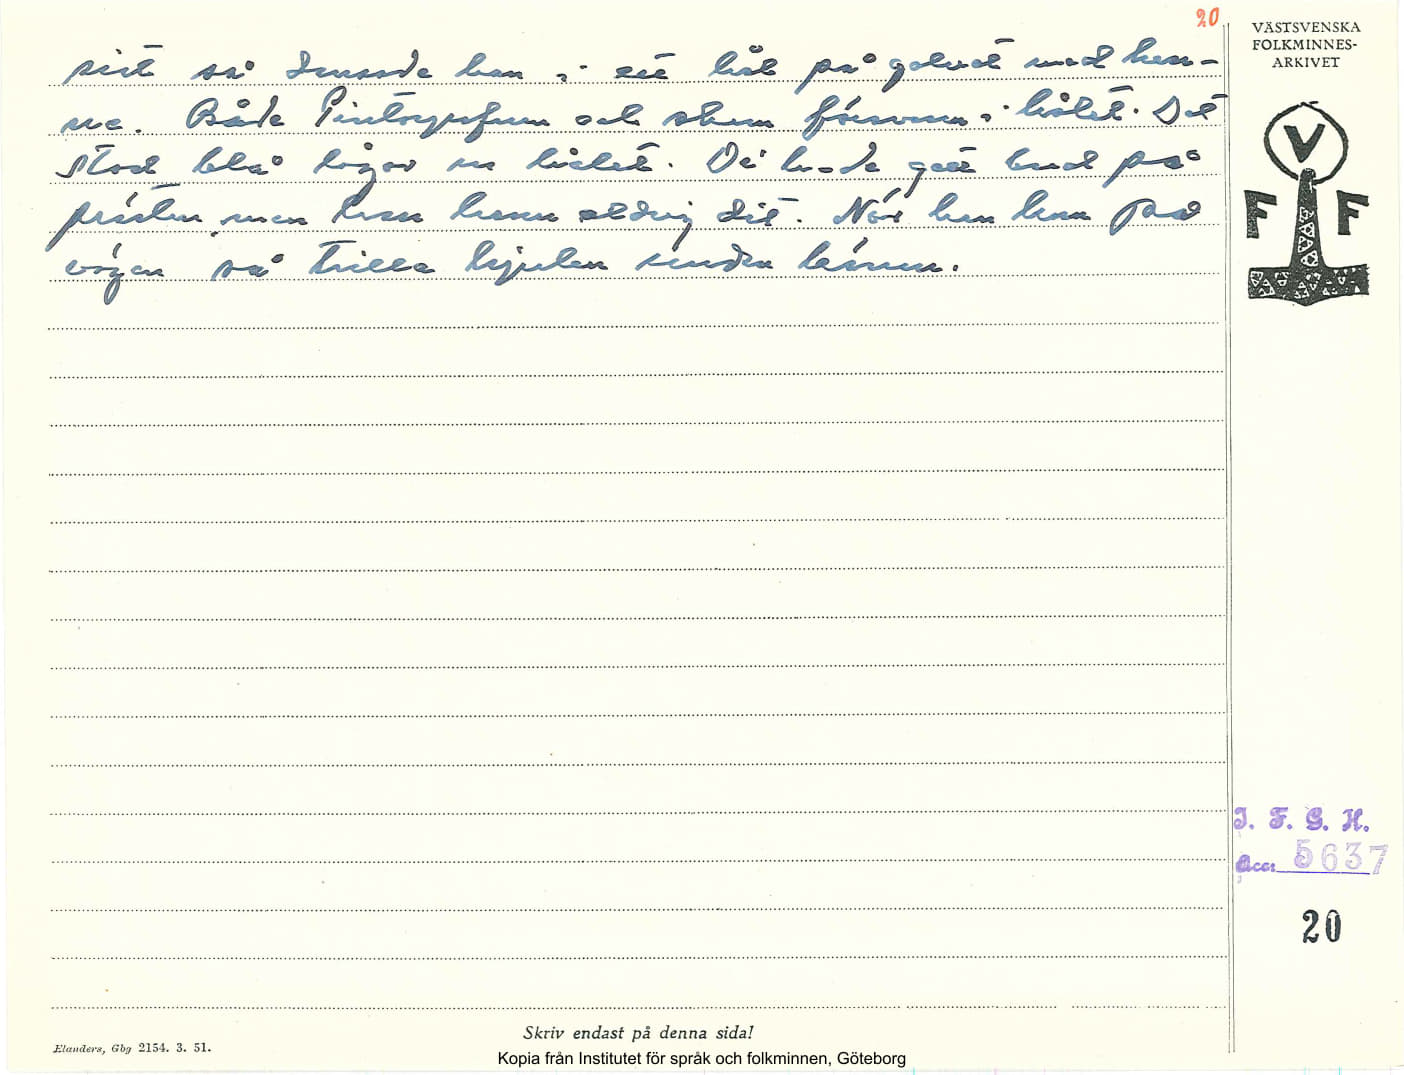 20
VÄSTSVENSKA
FOLKMINNES-
ARKIVET
sist så dunsade han i ett hål på golvet med hen-
ne. Både Pintorpsfrun och han försvann i hålet. Det
stod blå lågor ur hålet. De hade gett bud på
prästen men han hann aldrig dit. När han kom på
vägen så trilla hjulen sönder
V
F F
I. F. G. H.
Acc. 5637
20
Skriv endast på denna sida!
Elanders, Gbg 2154. 3. 51.
Kopia från Institutet för språk och folkminnen, Göteborg